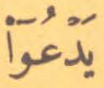 يَدۡعُوٓاْ